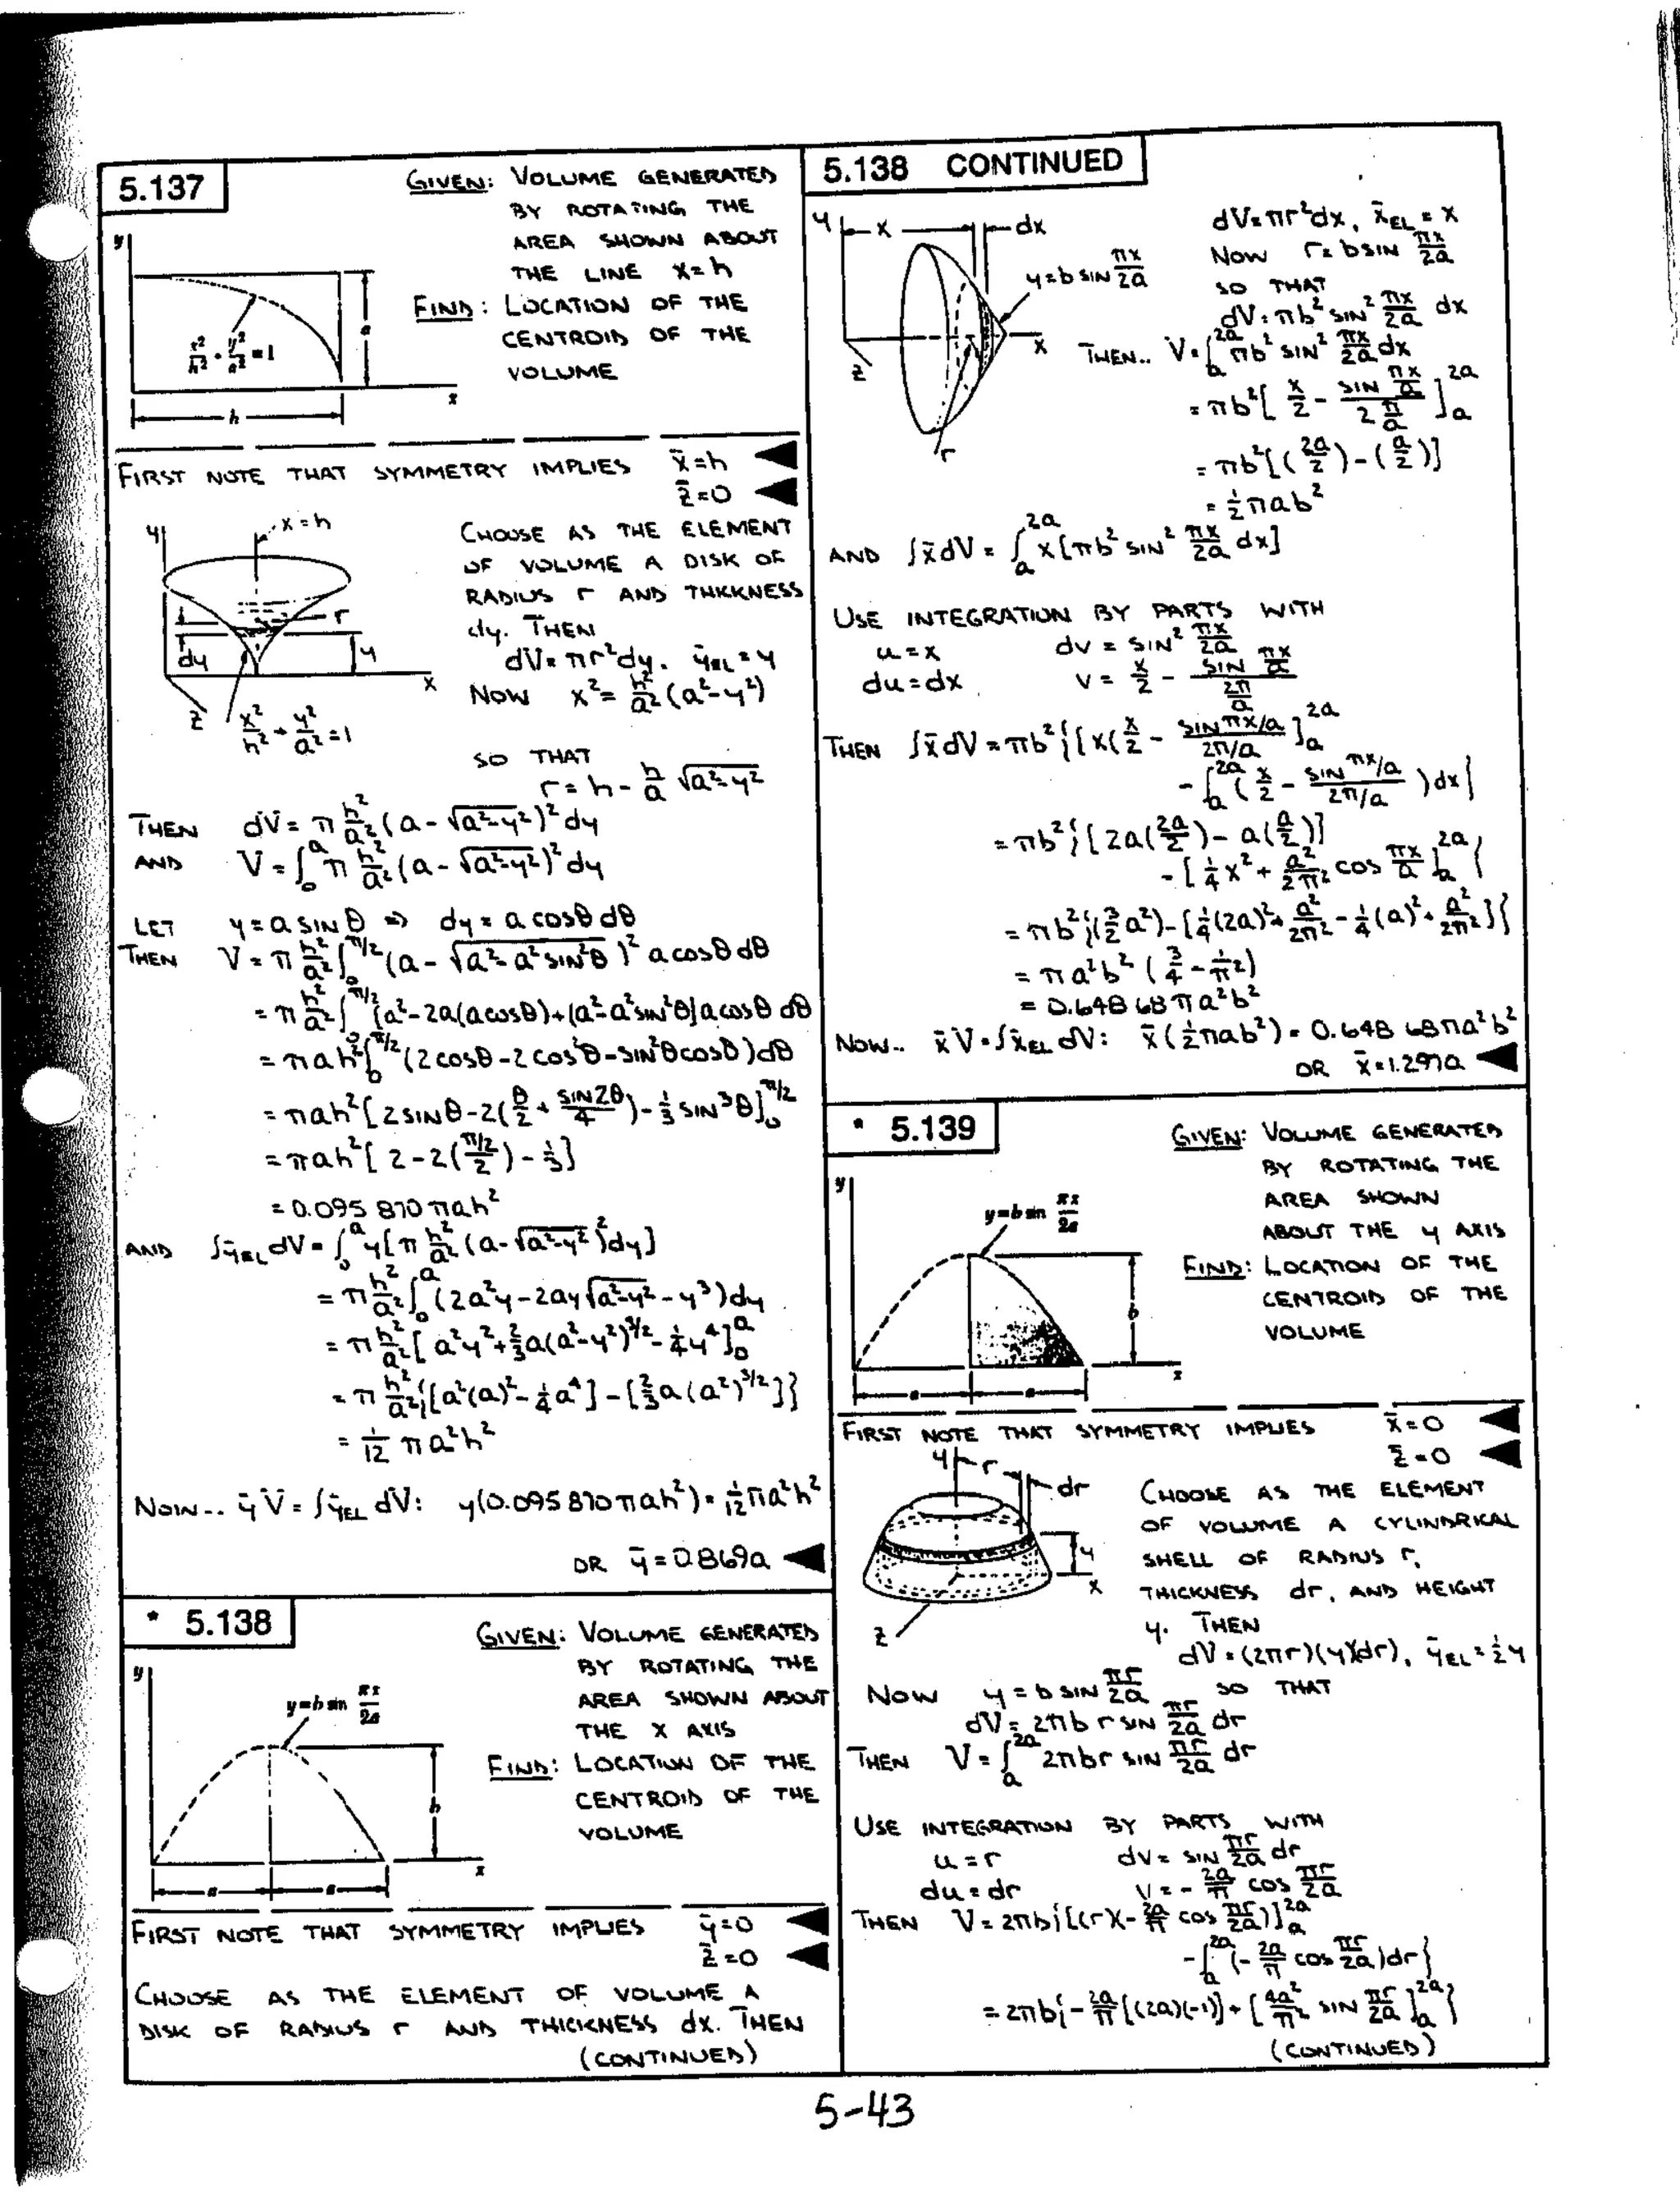 5.137
GIVEN: VOLUME GENERATED
BY ROTATING THE
AREA SHOWN ABOUT
THE LINE X=h
FIND: LOCATION OF THE
CENTROID OF THE
VOLUME
y
x²/h² + y²/a² = 1
a
x
h
FIRST NOTE THAT SYMMETRY IMPLIES x̄=h
z̄=0
y
x=h
r
dy
y
x
z
x²/h² + y²/a² = 1
CHOOSE AS THE ELEMENT
OF VOLUME A DISK OF
RADIUS r AND THICKNESS
dy. THEN
dV=πr²dy, ȳEL=y
NOW x²= h²/a² (a²-y²)
SO THAT
r= h - h/a √(a²-y²)
THEN dV= π h²/a² (a-√(a²-y²))² dy
AND V=∫₀ᵃ π h²/a² (a-√(a²-y²))² dy
LET y=a SIN θ ⇒ dy = a cosθ dθ
THEN V = π h²/a² ∫₀^(π/2) (a-√(a²-a²SIN²θ))² a cosθ dθ
= π h²/a² ∫₀^(π/2) [a²-2a(a cosθ)+(a²-a²SIN²θ)] a cosθ dθ
= πah² ∫₀^(π/2) (2cosθ-2cos²θ-SIN²θ cosθ)dθ
= πah² [2SINθ-2(θ/2 + SIN2θ/4)-1/3 SIN³θ]₀^(π/2)
= πah² [2-2((π/2)/2)-1/3]
= 0.095 870 πah²
AND ∫ȳEL dV = ∫₀ᵃ y[π h²/a² (a-√(a²-y²))² dy]
= π h²/a² ∫₀ᵃ (2a²y-2ay√(a²-y²)-y³)dy
= π h²/a² [a²y²+2/3 a(a²-y²)^(3/2)-1/4 y⁴]₀ᵃ
= π h²/a² {[a²(a)²-1/4 a⁴]-[2/3 a(a²)^(3/2)]}
= 1/12 πa²h²
NOW-- ȳV=∫ȳEL dV: y(0.095 870πah²)=1/12 πa²h²
OR ȳ=0.869a
* 5.138
GIVEN: VOLUME GENERATED
BY ROTATING THE
AREA SHOWN ABOUT
THE X AXIS
FIND: LOCATION OF THE
CENTROID OF THE
VOLUME
y
y=b sin πx/2a
b
x
a
a
FIRST NOTE THAT SYMMETRY IMPLIES ȳ=0
z̄=0
CHOOSE AS THE ELEMENT OF VOLUME A
DISK OF RADIUS r AND THICKNESS dx. THEN
(CONTINUED)
5.138 CONTINUED
y
x
dx
y=b SIN πx/2a
x
z
r
dV=πr²dx, x̄EL = x
NOW r=bSIN πx/2a
SO THAT
dV=πb² SIN² πx/2a dx
THEN.. V=∫ₐ²ᵃ πb² SIN² πx/2a dx
= πb²[x/2 - (SIN πx/a)/(2 π/a)]ₐ²ᵃ
= πb²[(2a/2)-(a/2)]
= 1/2 πab²
AND ∫x̄dV = ∫ₐ²ᵃ x[πb² SIN² πx/2a dx]
USE INTEGRATION BY PARTS WITH
u=x dv = SIN² πx/2a
du=dx v= x/2 - (SIN πx/a)/(2π/a)
THEN ∫x̄dV = πb²{[x(x/2 - (SIN πx/a)/(2π/a))]ₐ²ᵃ
-∫ₐ²ᵃ (x/2 - (SIN πx/a)/(2π/a))dx}
= πb²{[2a(2a/2)-a(a/2)]
-[1/4 x² + a²/2π² cos πx/a]ₐ²ᵃ}
= πb²{(3/2 a²)-[1/4(2a)²+a²/2π²-1/4(a)²+a²/2π²]}
= πa²b²(3/4-1/π²)
= 0.648 68πa²b²
NOW.. x̄V=∫x̄EL dV: x̄(1/2 πab²)=0.648 68πa²b²
OR x̄=1.297a
* 5.139
GIVEN: VOLUME GENERATED
BY ROTATING THE
AREA SHOWN
ABOUT THE y AXIS
FIND: LOCATION OF THE
CENTROID OF THE
VOLUME
y
y=b sin πx/2a
b
x
a
a
FIRST NOTE THAT SYMMETRY IMPLIES x̄=0
z̄=0
y
r
dr
y
x
z
CHOOSE AS THE ELEMENT
OF VOLUME A CYLINDRICAL
SHELL OF RADIUS r,
THICKNESS dr, AND HEIGHT
y. THEN
dV=(2πr)(y)(dr), ȳEL=1/2 y
NOW y=b SIN πr/2a SO THAT
dV=2πb r SIN πr/2a dr
THEN V=∫ₐ²ᵃ 2πbr SIN πr/2a dr
USE INTEGRATION BY PARTS WITH
u=r dv= SIN πr/2a dr
du=dr v=- 2a/π cos πr/2a
THEN V=2πb{[(r)(-2a/π cos πr/2a)]ₐ²ᵃ
-∫ₐ²ᵃ (-2a/π cos πr/2a)dr}
= 2πb{-2a/π [(2a)(-1)]+[4a²/π² SIN πr/2a]ₐ²ᵃ}
(CONTINUED)
5-43